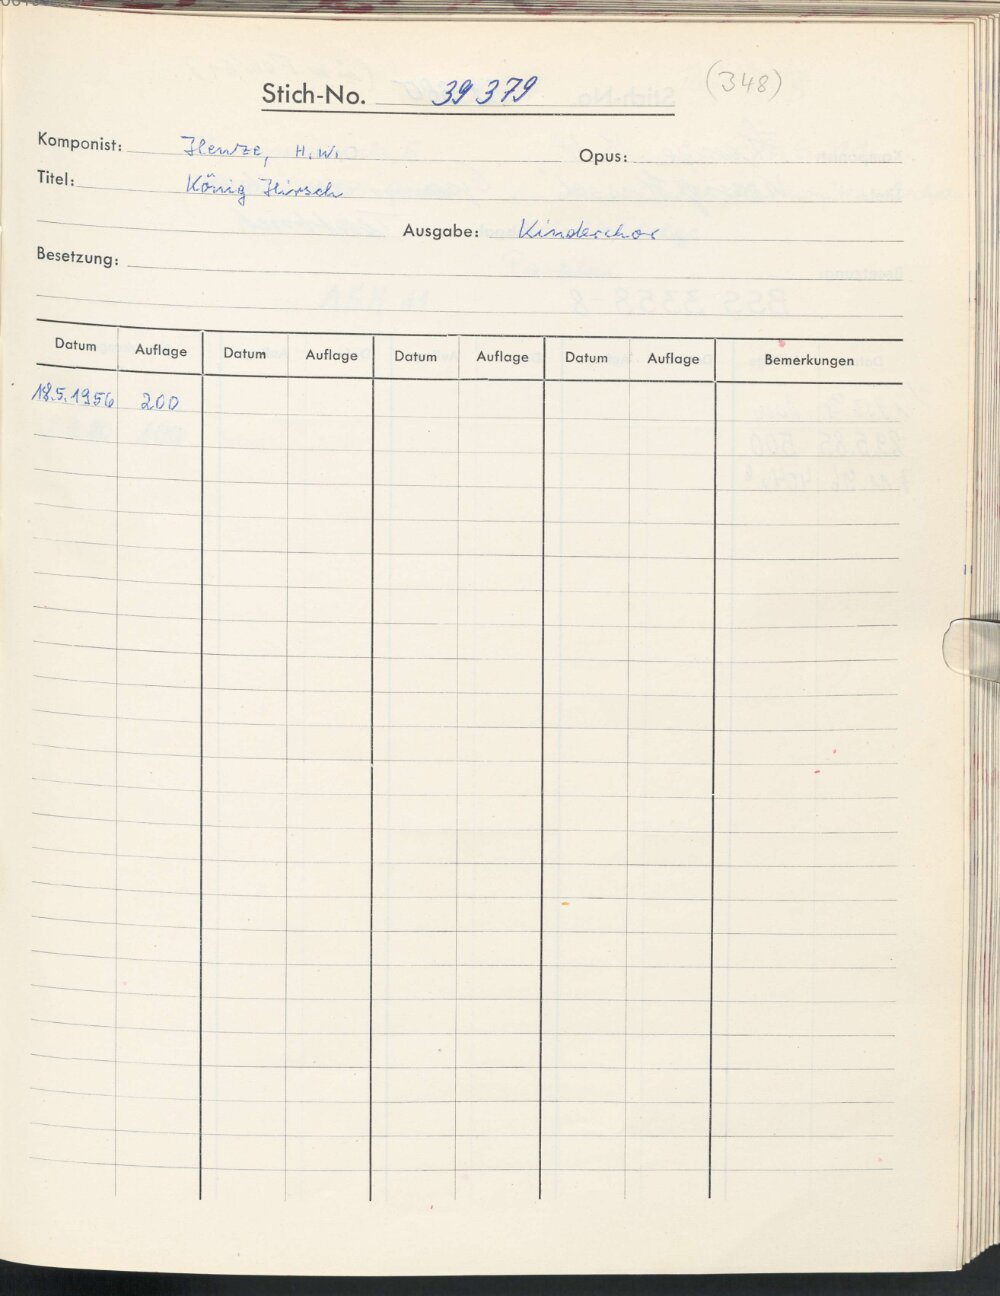 (348)
Stich-No. 39 379
Komponist: Henze, H.W. Opus:
Titel: König Hirsch
Ausgabe: Kinderchor
Besetzung:
Datum Auflage Datum Auflage Datum Auflage Datum Auflage Bemerkungen
18.5.1956 200